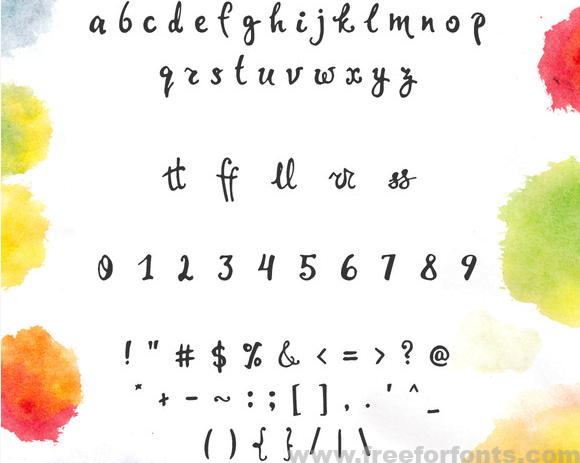 a b c d e f g h i j k l m n o p
q r s t u v w x y z
tt ff ll rr ss
0 1 2 3 4 5 6 7 8 9
! " # $ % & < = > ? @
* + - ~ : ; [ ] , . ' ^ _
( ) { } / | \
www.freeforfonts.com